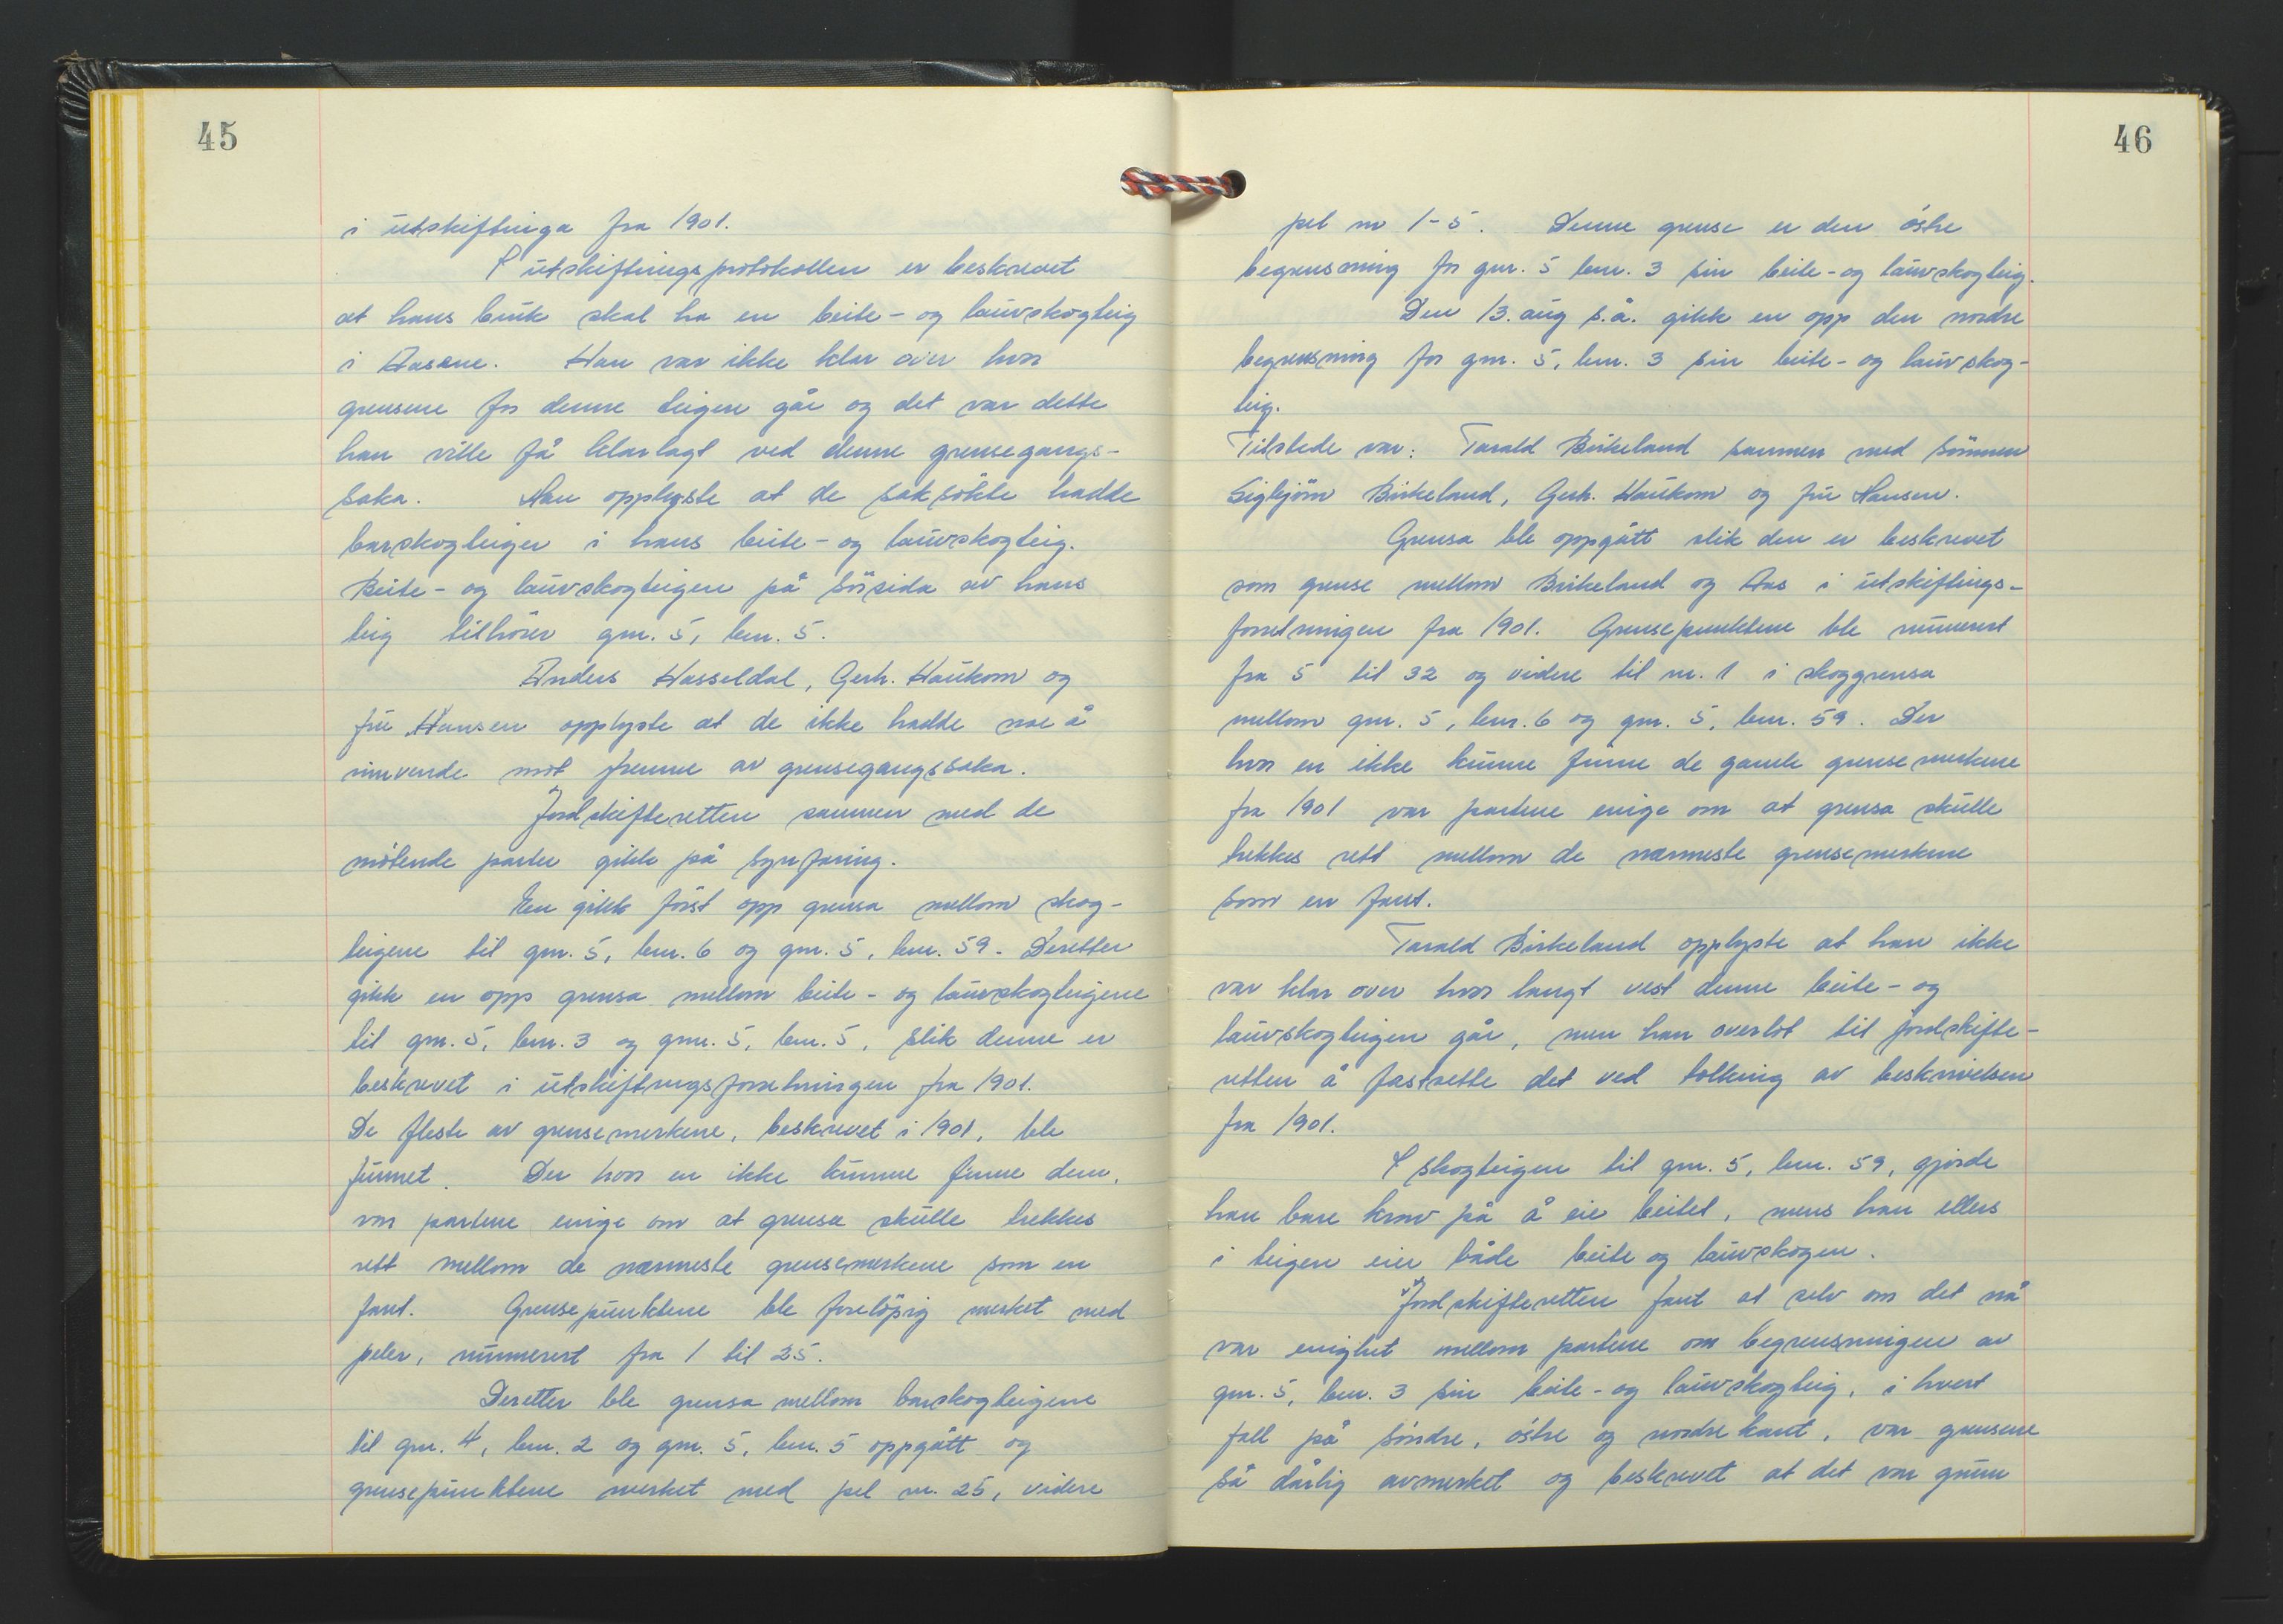 45
i utskiftinga fra 1901.
I utskiftingsprotokollen er beskrevet
at hans bruk skal ha en beite- og lauvskogteig
i Aasane. Han var ikke klar over hvor
grensene for denne teigen går og det var dette
han ville få klarlagt ved denne grensegangs-
saka. Han opplyste at de saksökte hadde
barskogteiger i hans beite- og lauvskogteig.
Beite- og lauvskogteigen på sörsida av hans
teig tilhörer gnr. 5, bnr. 5.
Anders Hasseldal, Gerh. Haukom og
fru Hansen opplyste at de ikke hadde noe å
innvende mot fremme av grensegangssaka.
Jordskifteretten sammen med de
mötende parter gikk på synfaring.
En gikk först opp grensa mellom skog-
teigene til gnr. 5, bnr. 6 og gnr. 5, bnr. 59. Deretter
gikk en opp grensa mellom beite- og lauvskogteigene
til gnr. 5, bnr. 3 og gnr. 5, bnr. 5, slik denne er
beskrevet i utskiftingsforretningen fra 1901.
De fleste av grensemerkene, beskrevet i 1901, ble
funnet. Der hvor en ikke kunne finne dem,
var partene enige om at grensa skulle trekkes
rett mellom de nærmeste grensemerkene som en
fant. Grensepunktene ble forelöpig merket med
peler, nummerert fra 1 til 25.
Deretter ble grensa mellom barskogteigene
til gnr. 4, bnr. 2 og gnr. 5, bnr. 5 oppgått og
grensepunktene merket med pel nr. 25, videre
46
pel nr 1-5. Denne grense er den östre
begrensning for gnr. 5 bnr. 3 sin beite- og lauvskogteig.
Den 13. aug s.å. gikk en opp den nordre
begrensning for gnr. 5, bnr. 3 sin beite- og lauvskog-
teig.
Tilstede var: Tarald Birkeland sammen med sönnen
Sigbjörn Birkeland, Gerh. Haukom og fru Hansen.
Grensa ble oppgått slik den er beskrevet
som grense mellom Birkeland og Aas i utskiftings-
forretningen fra 1901. Grensepunktene ble nummerert
fra 5 til 32 og videre til nr. 1 i skoggrensa
mellom gnr. 5, bnr. 6 og gnr. 5, bnr. 59. Der
hvor en ikke kunne finne de gamle grensemerkene
fra 1901 var partene enige om at grensa skulle
trekkes rett mellom de nærmeste grensemerkene
som en fant.
Tarald Birkeland opplyste at han ikke
var klar over hvor langt vest denne beite- og
lauvskogteigen går, men han overlot til jordskifte-
retten å fastsette det ved tolking av beskrivelsen
fra 1901.
I skogteigen til gnr. 5, bnr. 59, gjorde
han bare krav på å eie beitet, mens han ellers
i teigen eier både beite og lauvskogen.
Jordskifteretten fant at selv om det nå
var enighet mellom partene om begrensningen av
gnr. 5, bnr. 3 sin beite- og lauvskogteig, i hvert
fall på söndre, östre og nordre kant, var grensene
så dårlig avmerket og beskrevet at det var grunn